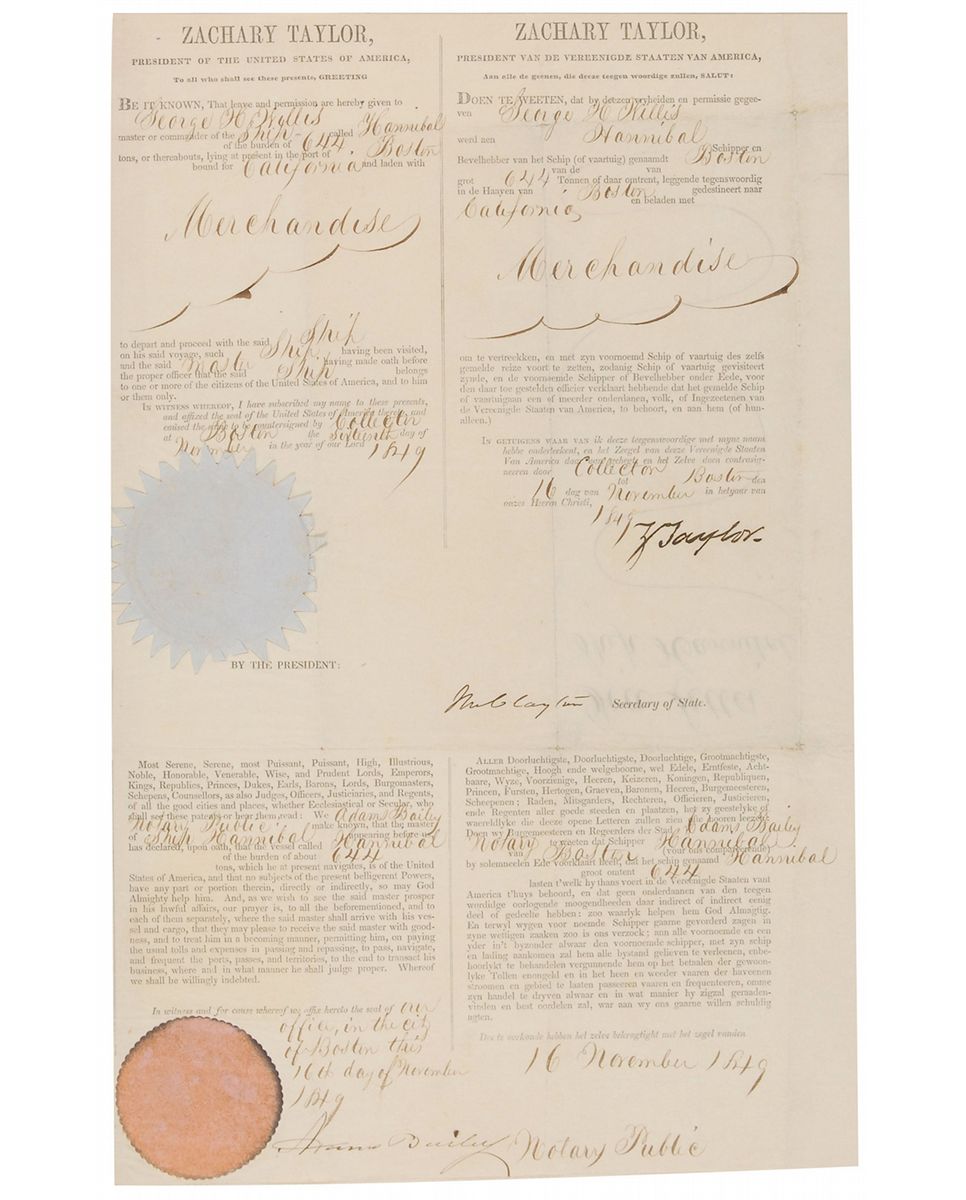 ZACHARY TAYLOR,
PRESIDENT OF THE UNITED STATES OF AMERICA,
To all who shall see these presents, GREETING
BE IT KNOWN, That leave and permission are hereby given to
George H Willis
master or commander of the Ship called Hannibal
of the burden of 644
tons, or thereabouts, lying at present in the port of Boston
bound for California and laden with
Merchandise
to depart and proceed with the said Ship
on his said voyage, such Ship having been visited,
and the said Master having made oath before
the proper officer that the said Ship belongs
to one or more of the citizens of the United States of America, and to him
or them only.
IN WITNESS WHEREOF, I have subscribed my name to these presents,
and affixed the seal of the United States of America thereto, and
caused the same to be countersigned by Collector
at Boston the sixteenth day of
November in the year of our Lord 1849
ZACHARY TAYLOR,
PRESIDENT VAN DE VEREENIGDE STAATEN VAN AMERICA,
Aan alle de geenen, die deeze teegen woordige zullen, SALUT:
DOEN TE WEETEN, dat by deezen vryheiden en permissie gegee-
ven George H Willis
werd aen Hannibal Schipper en
Bevelhebber van het Schip (of vaartuig) genaamdt Boston
van de van
grot 644 Tonnen of daar omtrent, leggende tegenswoordig
in de Haayen van Boston gedestineert naar
California en beladen met
Merchandise
om te vertreekken, en met zyn voornoemd Schip of vaartuig des zelfs
gemelde reize voort te zetten, zodanig Schip of vaartuig gevisiteert
zynde, en de voornoemde Schipper of Bevelhebber onder Eede, voor
den daar toe gestelden officier verklaart hebbende dat het gemelde Schip
of vaartuigaan een of meerder onderdanen, volk, of Ingezeetenen van
de Vereenigde Staaten van America, to behoort, en aan hem (of hun-
alleen.)
IN GETUIGENS WAAR VAN ik deeze teegenswoordige met myne naam
hebbe onderteekent, en het Zeegel van deeze Vereenigde Staaten
Van America daar aan gehegt, en het Zelve doen contrasig-
neeren door Collector tot Boston den
16 dag van November in hetjaar van
onzes Heeren Christi, 1849
Z Taylor.
BY THE PRESIDENT:
Jno M Clayton Secretary of State.
Most Serene, Serene, most Puissant, Puissant, High, Illustrious,
Noble, Honorable, Venerable, Wise, and Prudent Lords, Emperors,
Kings, Republics, Princes, Dukes, Earls, Barons, Lords, Burgomasters,
Schepens, Counsellors, as also Judges, Officers, Justiciaries, and Regents,
of all the good cities and places, whether Ecclesiastical or Secular, who
shall see these patents or hear them read: We Adams Bailey
Notary Public make known, that the master
of Ship Hannibal appearing before us
has declared, upon oath, that the vessel called Hannibal
of the burden of about 644
tons, which he at present navigates, is of the United
States of America, and that no subjects of the present belligerent Powers,
have any part or portion therein, directly or indirectly, so may God
Almighty help him. And, as we wish to see the said master prosper
in his lawful affairs, our prayer is, to all the beforementioned, and to
each of them separately, where the said master shall arrive with his ves-
sel and cargo, that they may please to receive the said master with good-
ness, and to treat him in a becoming manner, permitting him, on paying
the usual tolls and expenses in passing and repassing, to pass, navigate,
and frequent the ports, passes, and territories, to the end to transact his
business, where and in what manner he shall judge proper. Whereof
we shall be willingly indebted.
In witness and for cause whereof we affix hereto the seal of our
office, in the city
of Boston this
16th day of November
1849
ALLER Doorluchtigste, Doorluchtigste, Doorluchtige, Grootmachtigste,
Grootmachtige, Hoogh ende welgeboorne, wel Edele, Erntfeste, Acht-
baare, Wyze, Voorzienige, Heeren, Keizeren, Koningen, Republiquen,
Princen, Fursten, Hertogen, Graeven, Baronen, Heeren, Burgemeesteren,
Scheepenen; Raden, Mitsgarders, Rechteren, Officieren, Justicieren,
ende Regenten aller goede steeden en plaatzen, het zy geestelyke of
waereldlyke die deeze opene Letteren zullen zien ofte hooren leezen:
Doen wy Burgemeesteren en Regeerders der Stad Adams Bailey
Notary te weeten dat Schipper Hannibal
van Boston (voor ons compareerende)
by solemneelen Ede voorklaart heeft, dat het schip genaamd Hannibal
groot omtent 644
lasten t'welk by thans voert in de Vereenigde Staaten vant
America t'huys behoord, en dat geen onderdanen van den teegen
wordidge oorlogende moogendheeden daar indirect of indirect eenig
deel of gedeelte hebben: zoo waarlyk helpen hem God Almagtig.
En terwyl wygen voor noemde Schipper gaarne gevorderd zagen in
gyne wettigen zaaken zoo is ons verzock; ann alle voornoemde en een
yder in't byzonder alwaar den voornoemde schipper, met zyn schip
en lading aankomen zal hem alle bystand gelieven te verleenen, enbe-
hoorlykt te behandelen vergunnende hem op het betaalen der gewoon-
lyke Tollen enongeld en in het heen en weeder vaaren der haveenen
stroomen en gebied te lasten passeeren vaaren en frequenteeren, omme
zyn handel te dryven alwaar en in wat manier hy zigzal geraaden-
vinden en best oordelen zal, war aan wy ons gaarne willen schuldig
agten.
Des te oorkonde hebben het zelve bekragtight met het zegel vanden
16 November 1849
Adams Bailey Notary Public